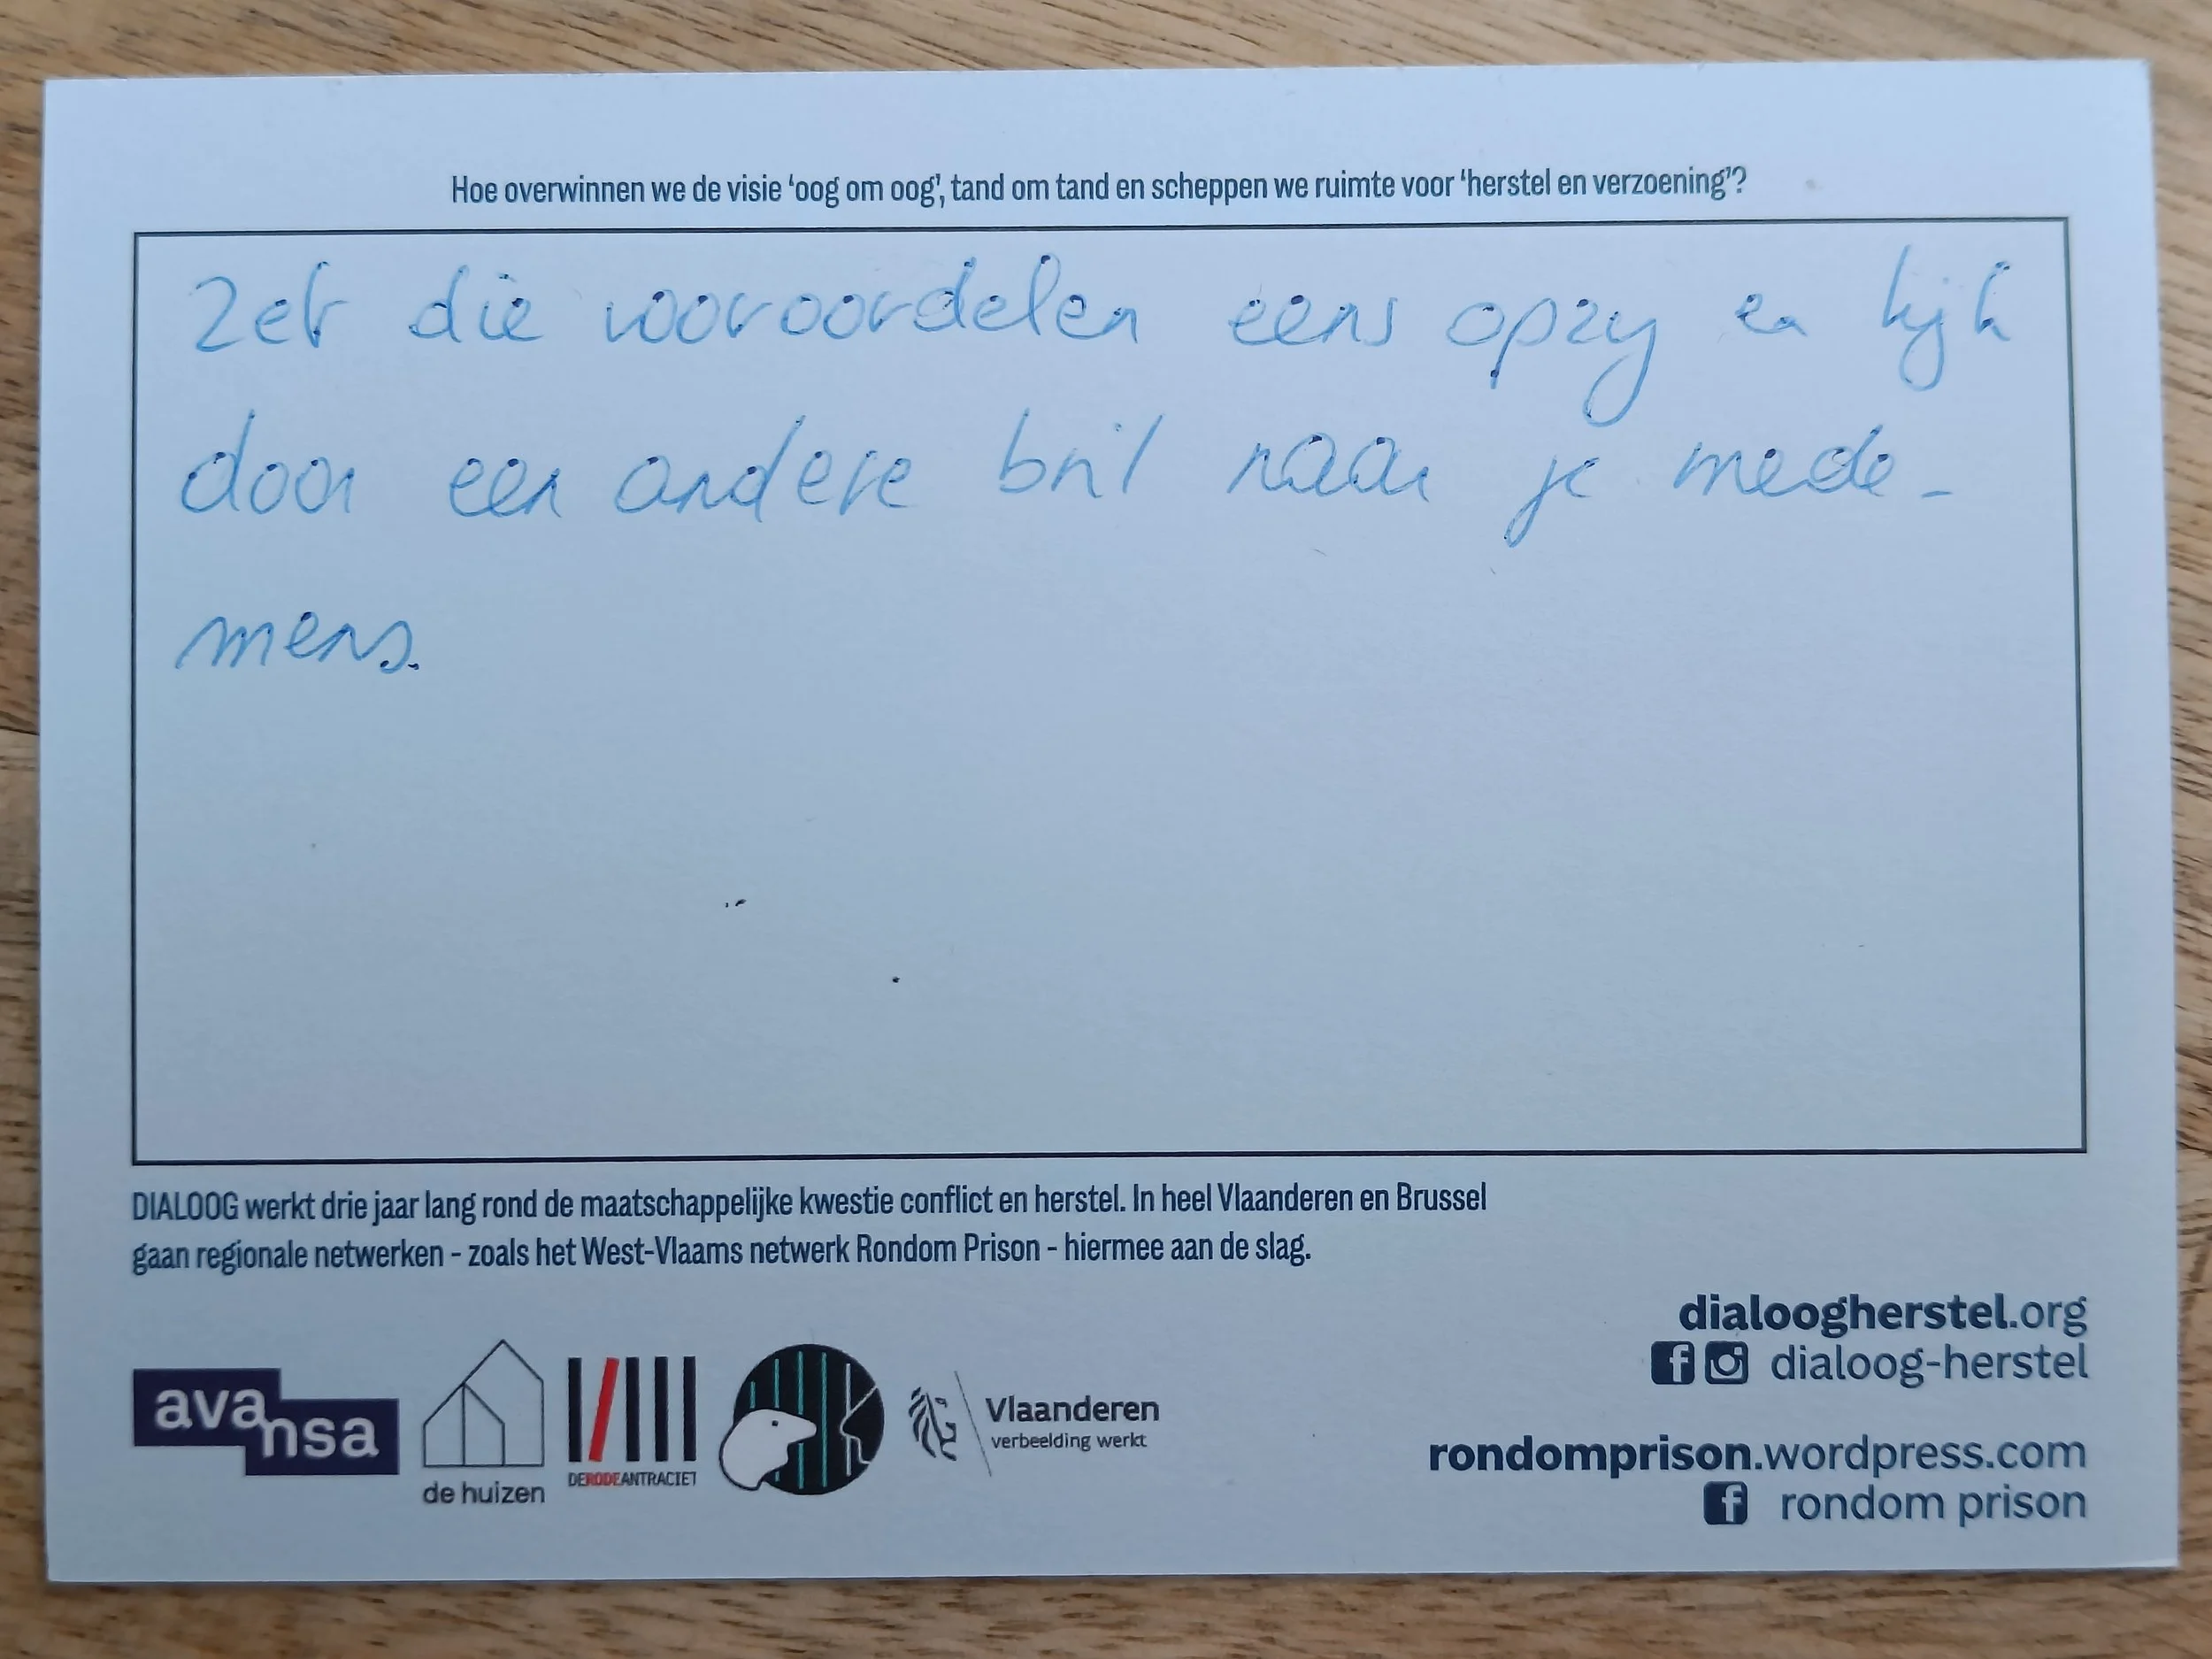 Hoe overwinnen we de visie ‘oog om oog’, tand om tand en scheppen we ruimte voor ‘herstel en verzoening’?
Zet die vooroordelen eens opzij en kijk
door een andere bril naar je mede-
mens.
DIALOOG werkt drie jaar lang rond de maatschappelijke kwestie conflict en herstel. In heel Vlaanderen en Brussel
gaan regionale netwerken - zoals het West-Vlaams netwerk Rondom Prison - hiermee aan de slag.
avansa
de huizen
DERODEANTRACIET
Vlaanderen
verbeelding werkt
dialoogherstel.org
dialoog-herstel
rondomprison.wordpress.com
rondom prison